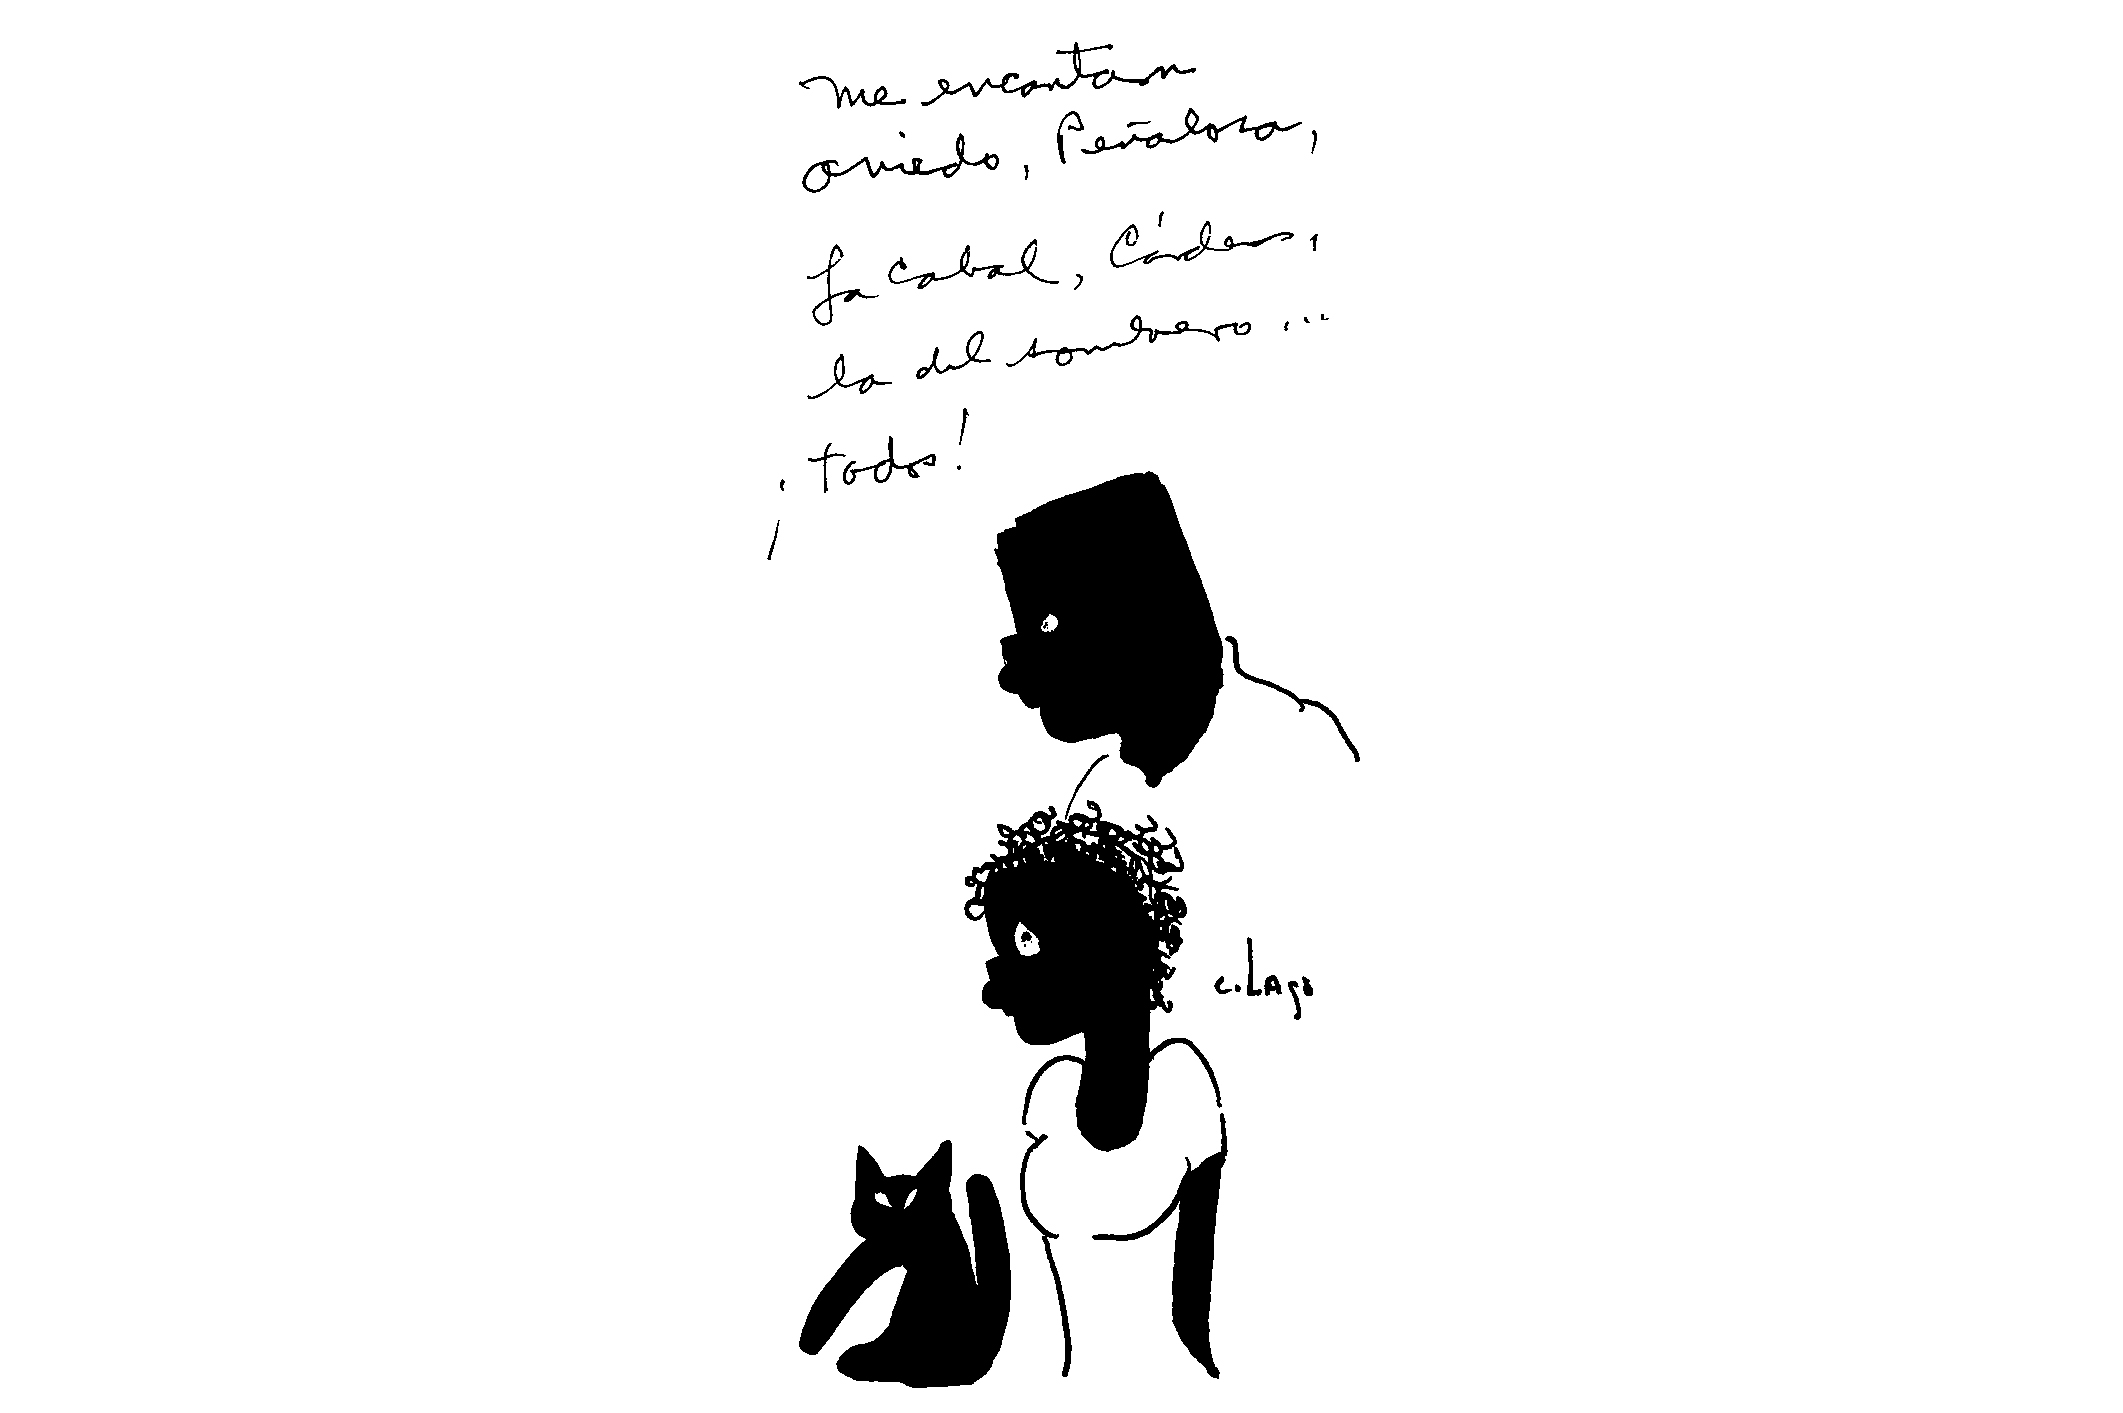 me encantan
Oviedo, Peñalosa,
La Cabal, Cárdenas,
la del sombrero...
¡todos!
c. Lago